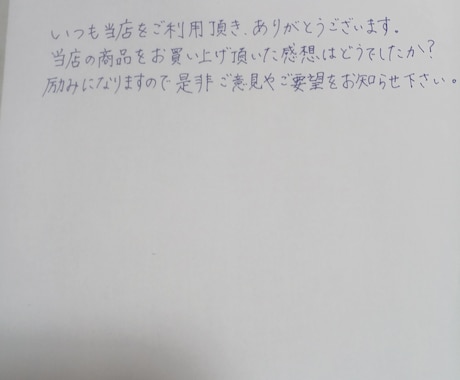 いつも当店をご利用頂き、ありがとうございます。
当店の商品をお買い上げ頂いた感想はどうでしたか?
励みになりますので是非ご意見やご要望をお知らせ下さい。